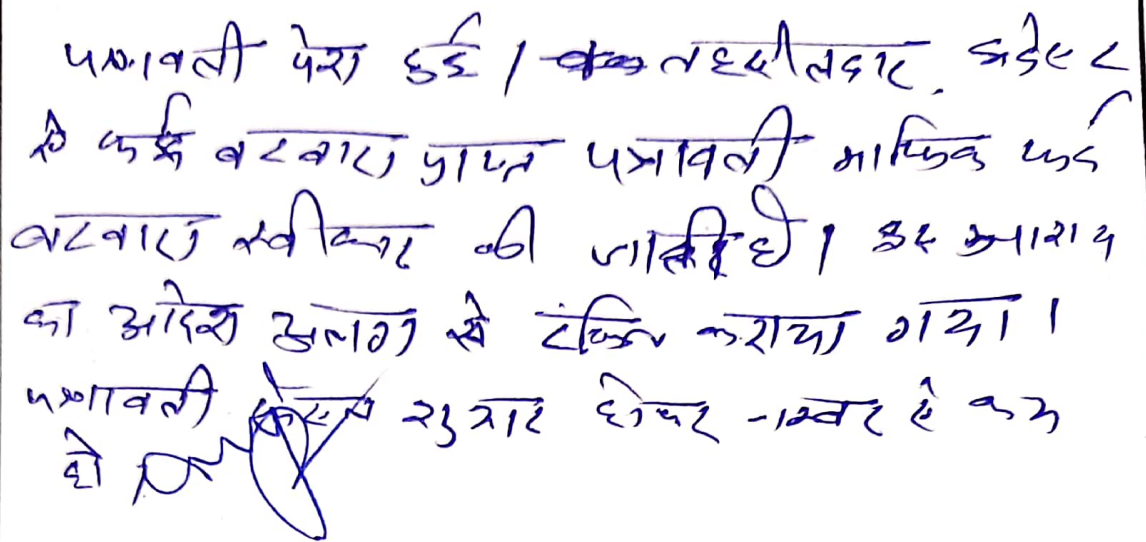 पत्रावली पेश हुई । तहसीलदार
से फर्द बटवारा प्राप्त पत्रावली माफिक फर्द
बटवारा स्वीकार की जाती है। इस आशय
का आदेश अलग से टंकित कराया गया ।
पत्रावली शुमार होकर नम्बर से कम
हो